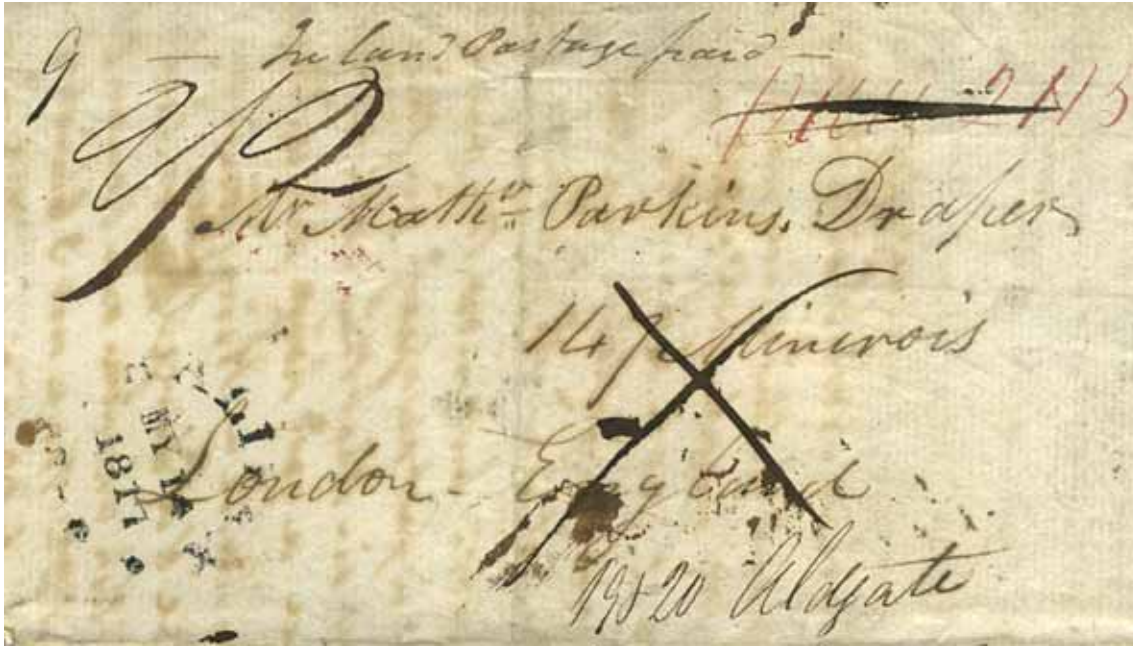 9 — Inland Postage paid —
2/2
Mr. Matth.w Parkins. Draper
147 Minerois
London - England
MY
1817
19 & 20 Aldgate